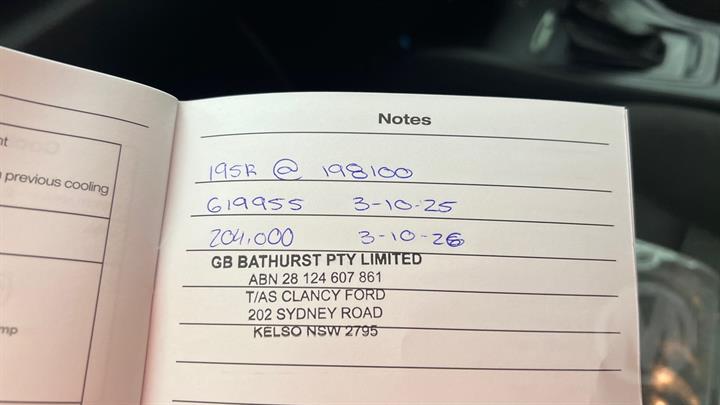 nt
previous cooling
mp
Notes
195K @ 198100
619955 3-10-25
204,000 3-10-26
GB BATHURST PTY LIMITED
ABN 28 124 607 861
T/AS CLANCY FORD
202 SYDNEY ROAD
KELSO NSW 2795